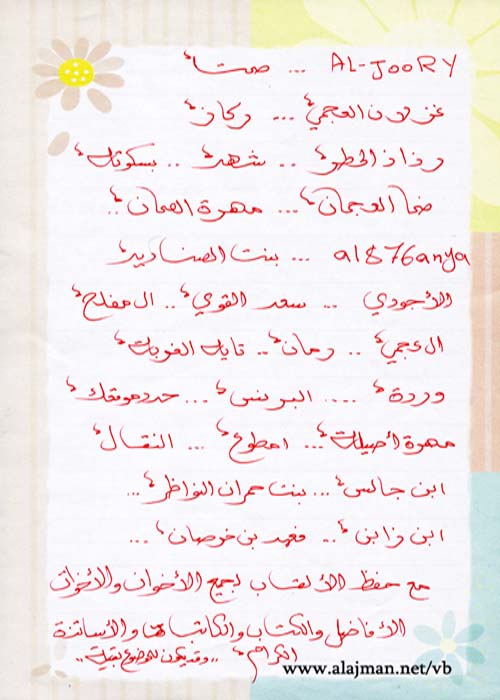 AL-JOORY ... صمتاً
غزلان العجمي ... ركاز
رذاذ الخطر .. شهد .. بسكوته
ضما العجمان ... مهرة العمان ..
al876anya ... بنت الصناديد
الأجودي .. سعد القوي .. ال مفلح
العجمي .. رمان .. تايه الغربة
وردة .... البرنس ... حدد موقفك
مهرة أصيلة ... امطوع ... النقال
ابن جالس ... بنت حمران النواظر ...
ابن زابن .. فهد بن خرصان ...
مع حفظ الألقاب لجميع الأخوان والأخوات
الأفاضل والكتاب والكاتبات والأساتذة
الكرام ,, وقد يكون للموضوع بقية ,,
www.alajman.net/vb